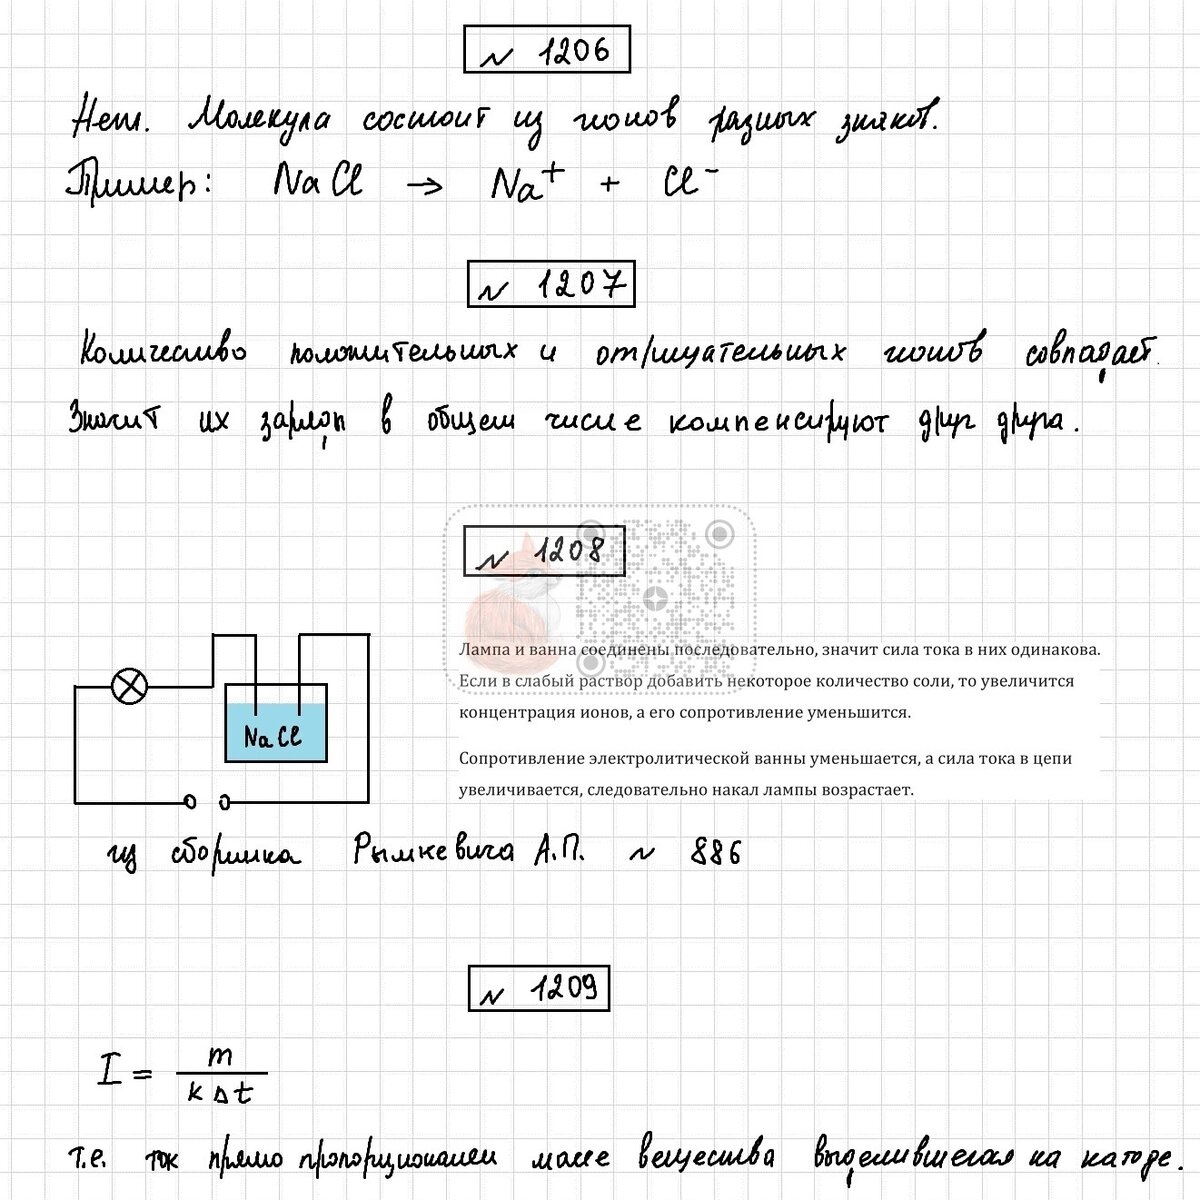 № 1206
Нет. Молекула состоит из ионов разных знаков.
Пример: NaCl → Na⁺ + Cl⁻
№ 1207
Количество положительных и отрицательных ионов совпадает.
Значит их заряд в общем числе компенсируют друг друга.
№ 1208
Лампа и ванна соединены последовательно, значит сила тока в них одинакова.
Если в слабый раствор добавить некоторое количество соли, то увеличится
концентрация ионов, а его сопротивление уменьшится.
NaCl
Сопротивление электролитической ванны уменьшается, а сила тока в цепи
увеличивается, следовательно накал лампы возрастает.
из сборника Рымкевича А.П. № 886
№ 1209
I = m / k Δt
т.е. ток прямо пропорционален массе вещества выделившегося на катоде.